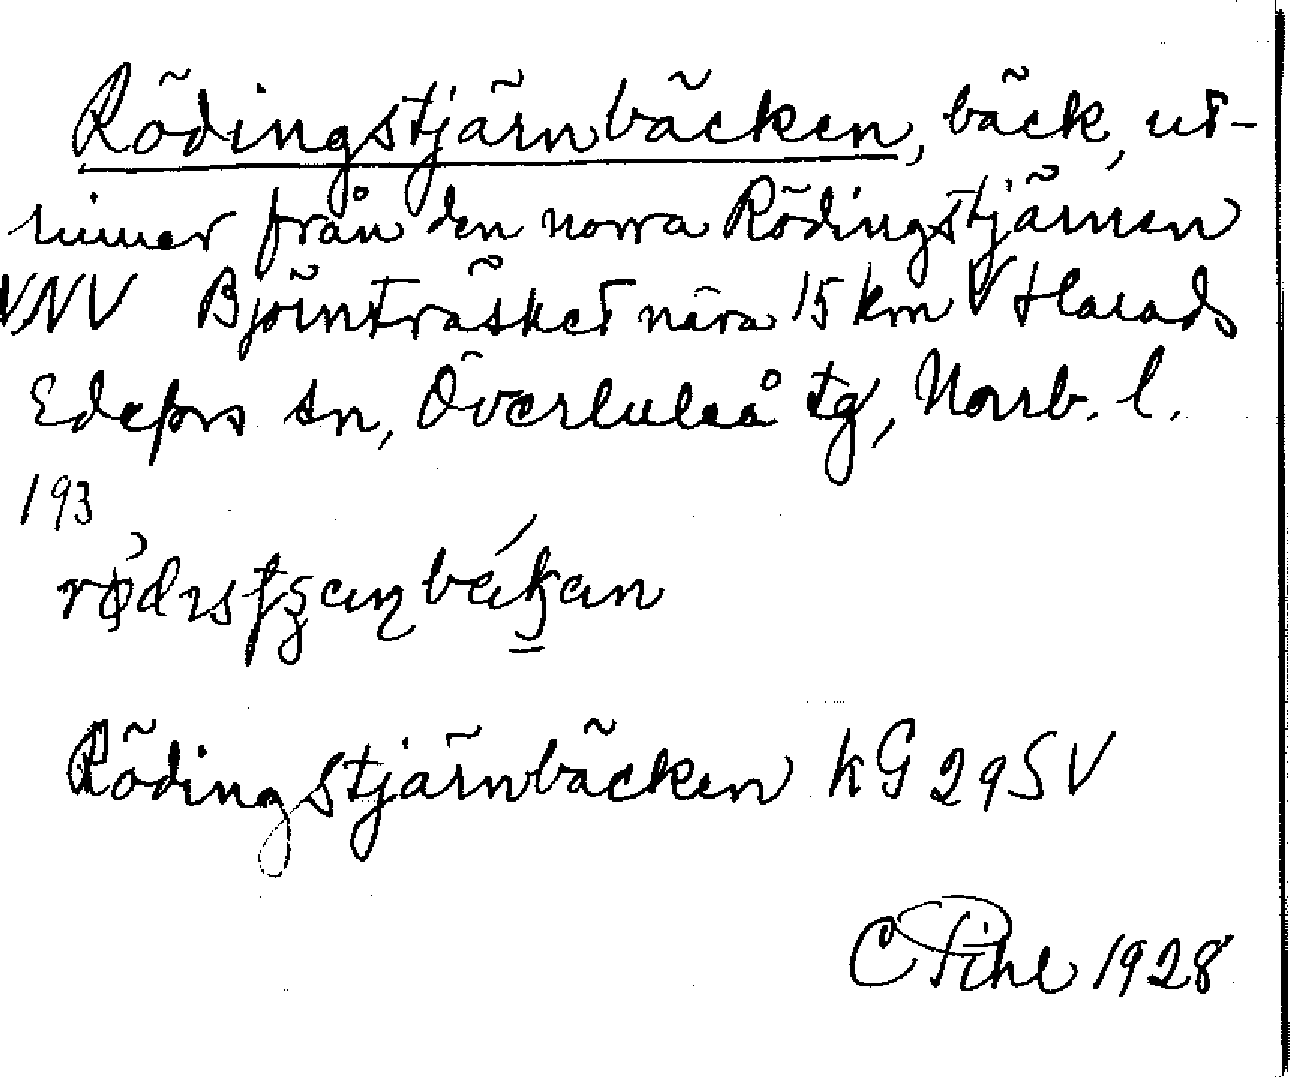 Rödingstjärnbäcken, bäck, ut-
rinner från den norra Rödingstjärnen
VNV Björnträsket nära 15 km V Harads
Edefors sn, Överluleå tg, Norrb. l.
193
Rödingstjärnbäcken kG 29 SV
C Pihl 1928